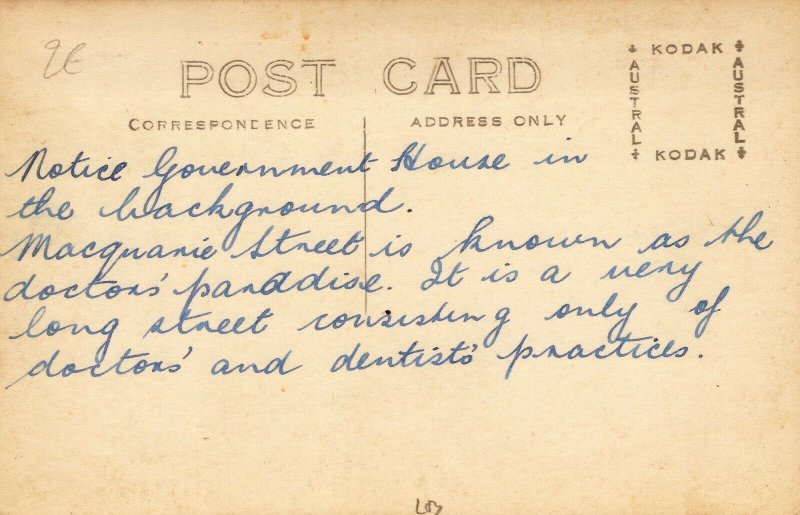 POST CARD
CORRESPONDENCE
ADDRESS ONLY
KODAK
AUSTRAL
AUSTRAL
KODAK
Notice Government House in
the background.
Macquarie Street is known as the
doctors' paraddise. It is a very
long street consisting only of
doctors' and dentists' practices.